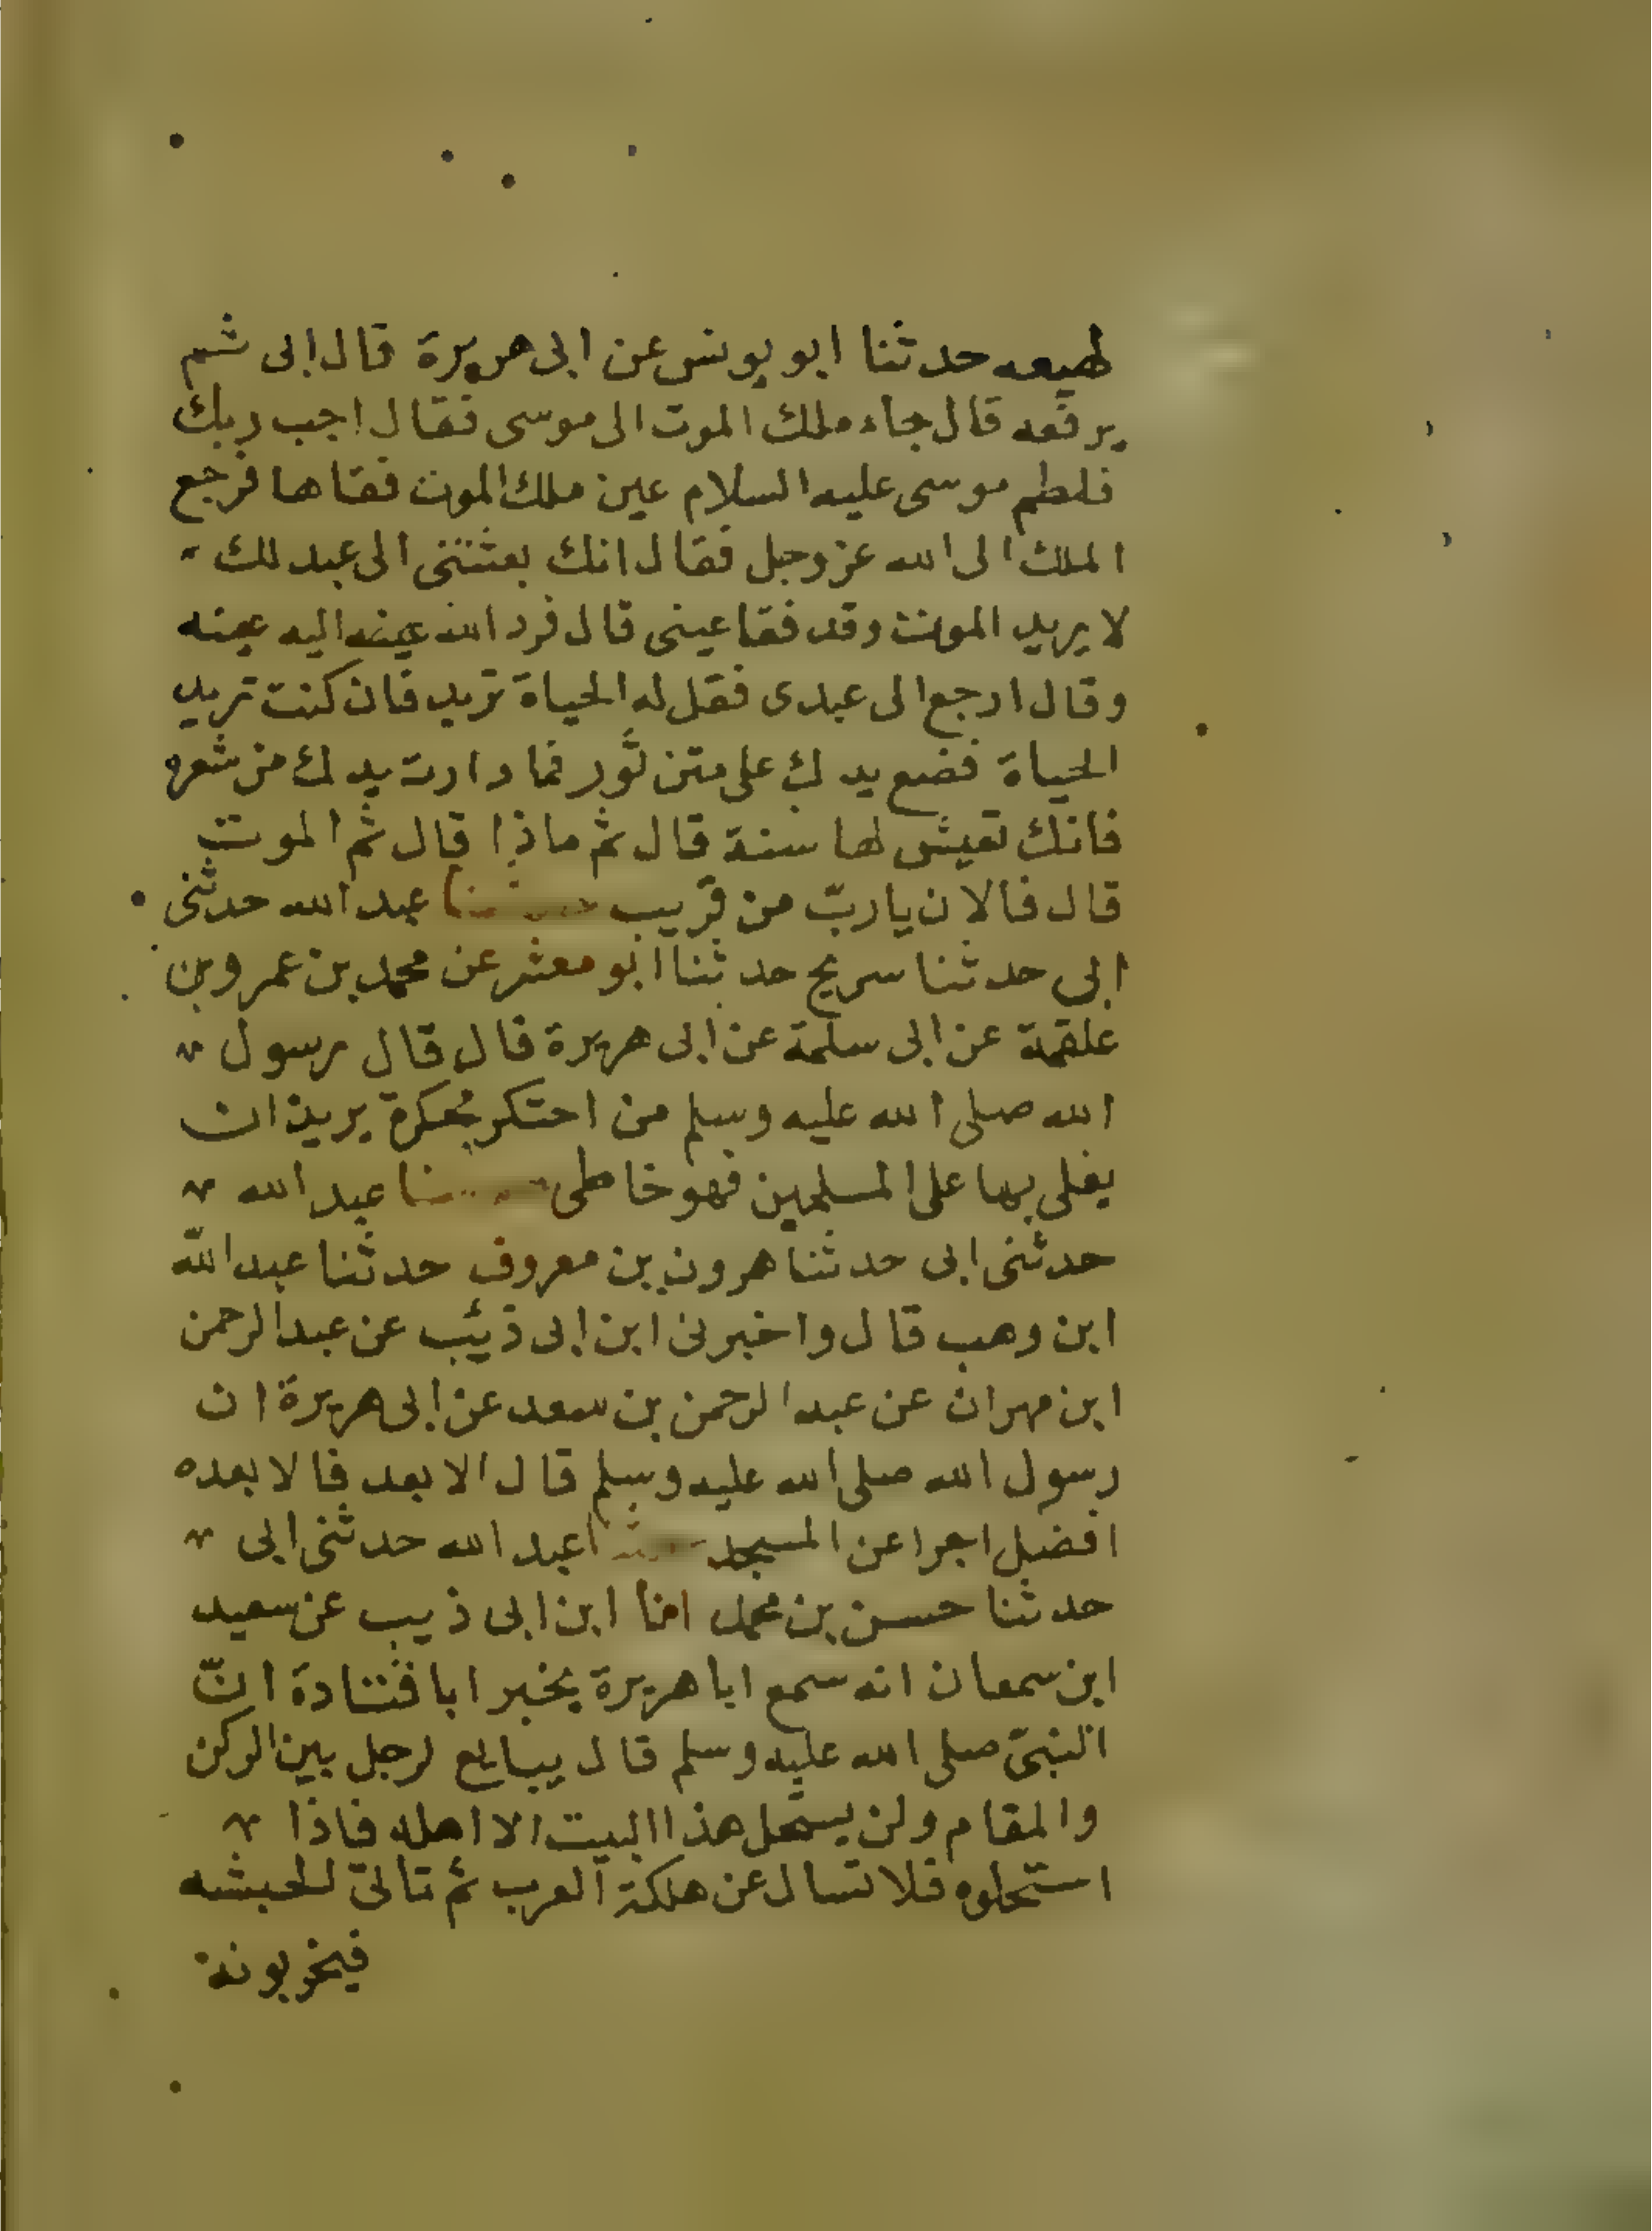 لهيعه حدثنا ابو يونس عن ابى هريرة قال ابى ثم
يرفعه قال جاء ملك الموت الى موسى فقال اجب ربك
فلطم موسى عليه السلام عين ملك الموت ففقاها فرجع
الملك الى الله عز وجل فقال انك بعثتنى الى عبد لك
لا يريد الموت وقد فقا عينى قال فرد الله عينه اليه عينه
وقال ارجع الى عبدى فقل له الحياة تريد فان كنت تريد
الحياة فضع يدك على متن ثور فما وارت يدك من شعره
فانك تعيش لها سنة قال ثم ماذا قال ثم الموت
قال فالان يا ربّ من قريب عبد الله حدثنى
ابى حدثنا سريج حدثنا ابو معشر عن محمد بن عمرو بن
علقمة عن ابى سلمة عن ابى هريرة قال قال رسول
الله صلى الله عليه وسلم من احتكر حُكرة يريد ان
يغلى بها على المسلمين فهو خاطى عبد الله
حدثنى ابى حدثنا هرون بن معروف حدثنا عبد الله
ابن وهب قال واخبرنى ابن ابى ذئب عن عبد الرحمن
ابن مهران عن عبد الرحمن بن سعد عن ابى هريرة ان
رسول الله صلى الله عليه وسلم قال الابعد فالابعده
افضل اجرا عن المسجد عبد الله حدثنى ابى
حدثنا حسن بن محمد انا ابن ابى ذيب عن سعيد
ابن سمعان انه سمع ابا هريرة يخبر ابا قتادة انّ
النبىّ صلى الله عليه وسلم قال يبايع لرجل بين الركن
والمقام ولن يستحل هذا البيت الا اهله فاذا
استحلوه فلا تسال عن هلكة العرب ثم تاتى الحبشه
فيخربونة